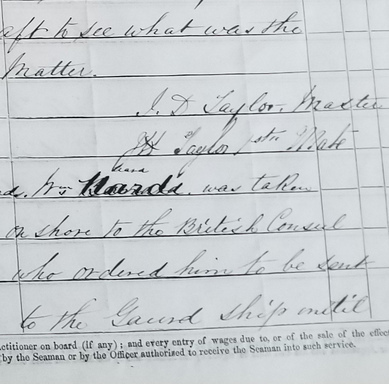 aft to see what was the
Matter.
J. D Taylor. Master
JH Taylor 1st Mate
Wm was taken
on shore to the British Consul
who ordered him to be sent
to the Gaurd ship until
actitioner on board (if any); and every entry of wages due to, or of the sale of the effect
by the Seaman or by the Officer authorised to receive the Seaman into such service.